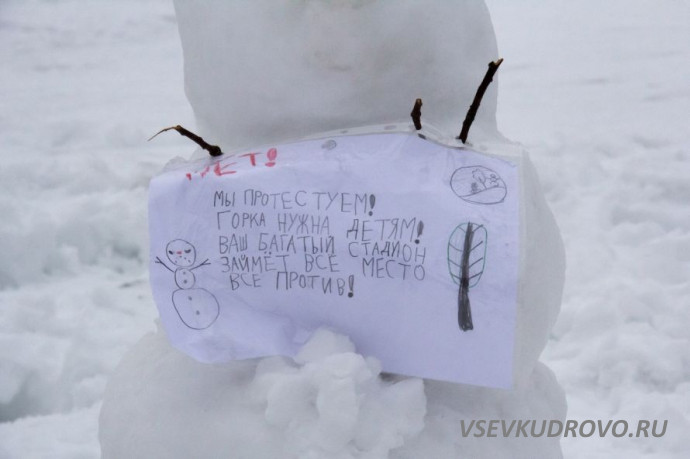 НЕТ!
МЫ ПРОТЕСТУЕМ!
ГОРКА НУЖНА ДЕТЯМ!
ВАШ БАГАТЫЙ СТАДИОН
ЗАЙМЁТ ВСЁ МЕСТО
ВСЕ ПРОТИВ!
VSEVKUDROVO.RU